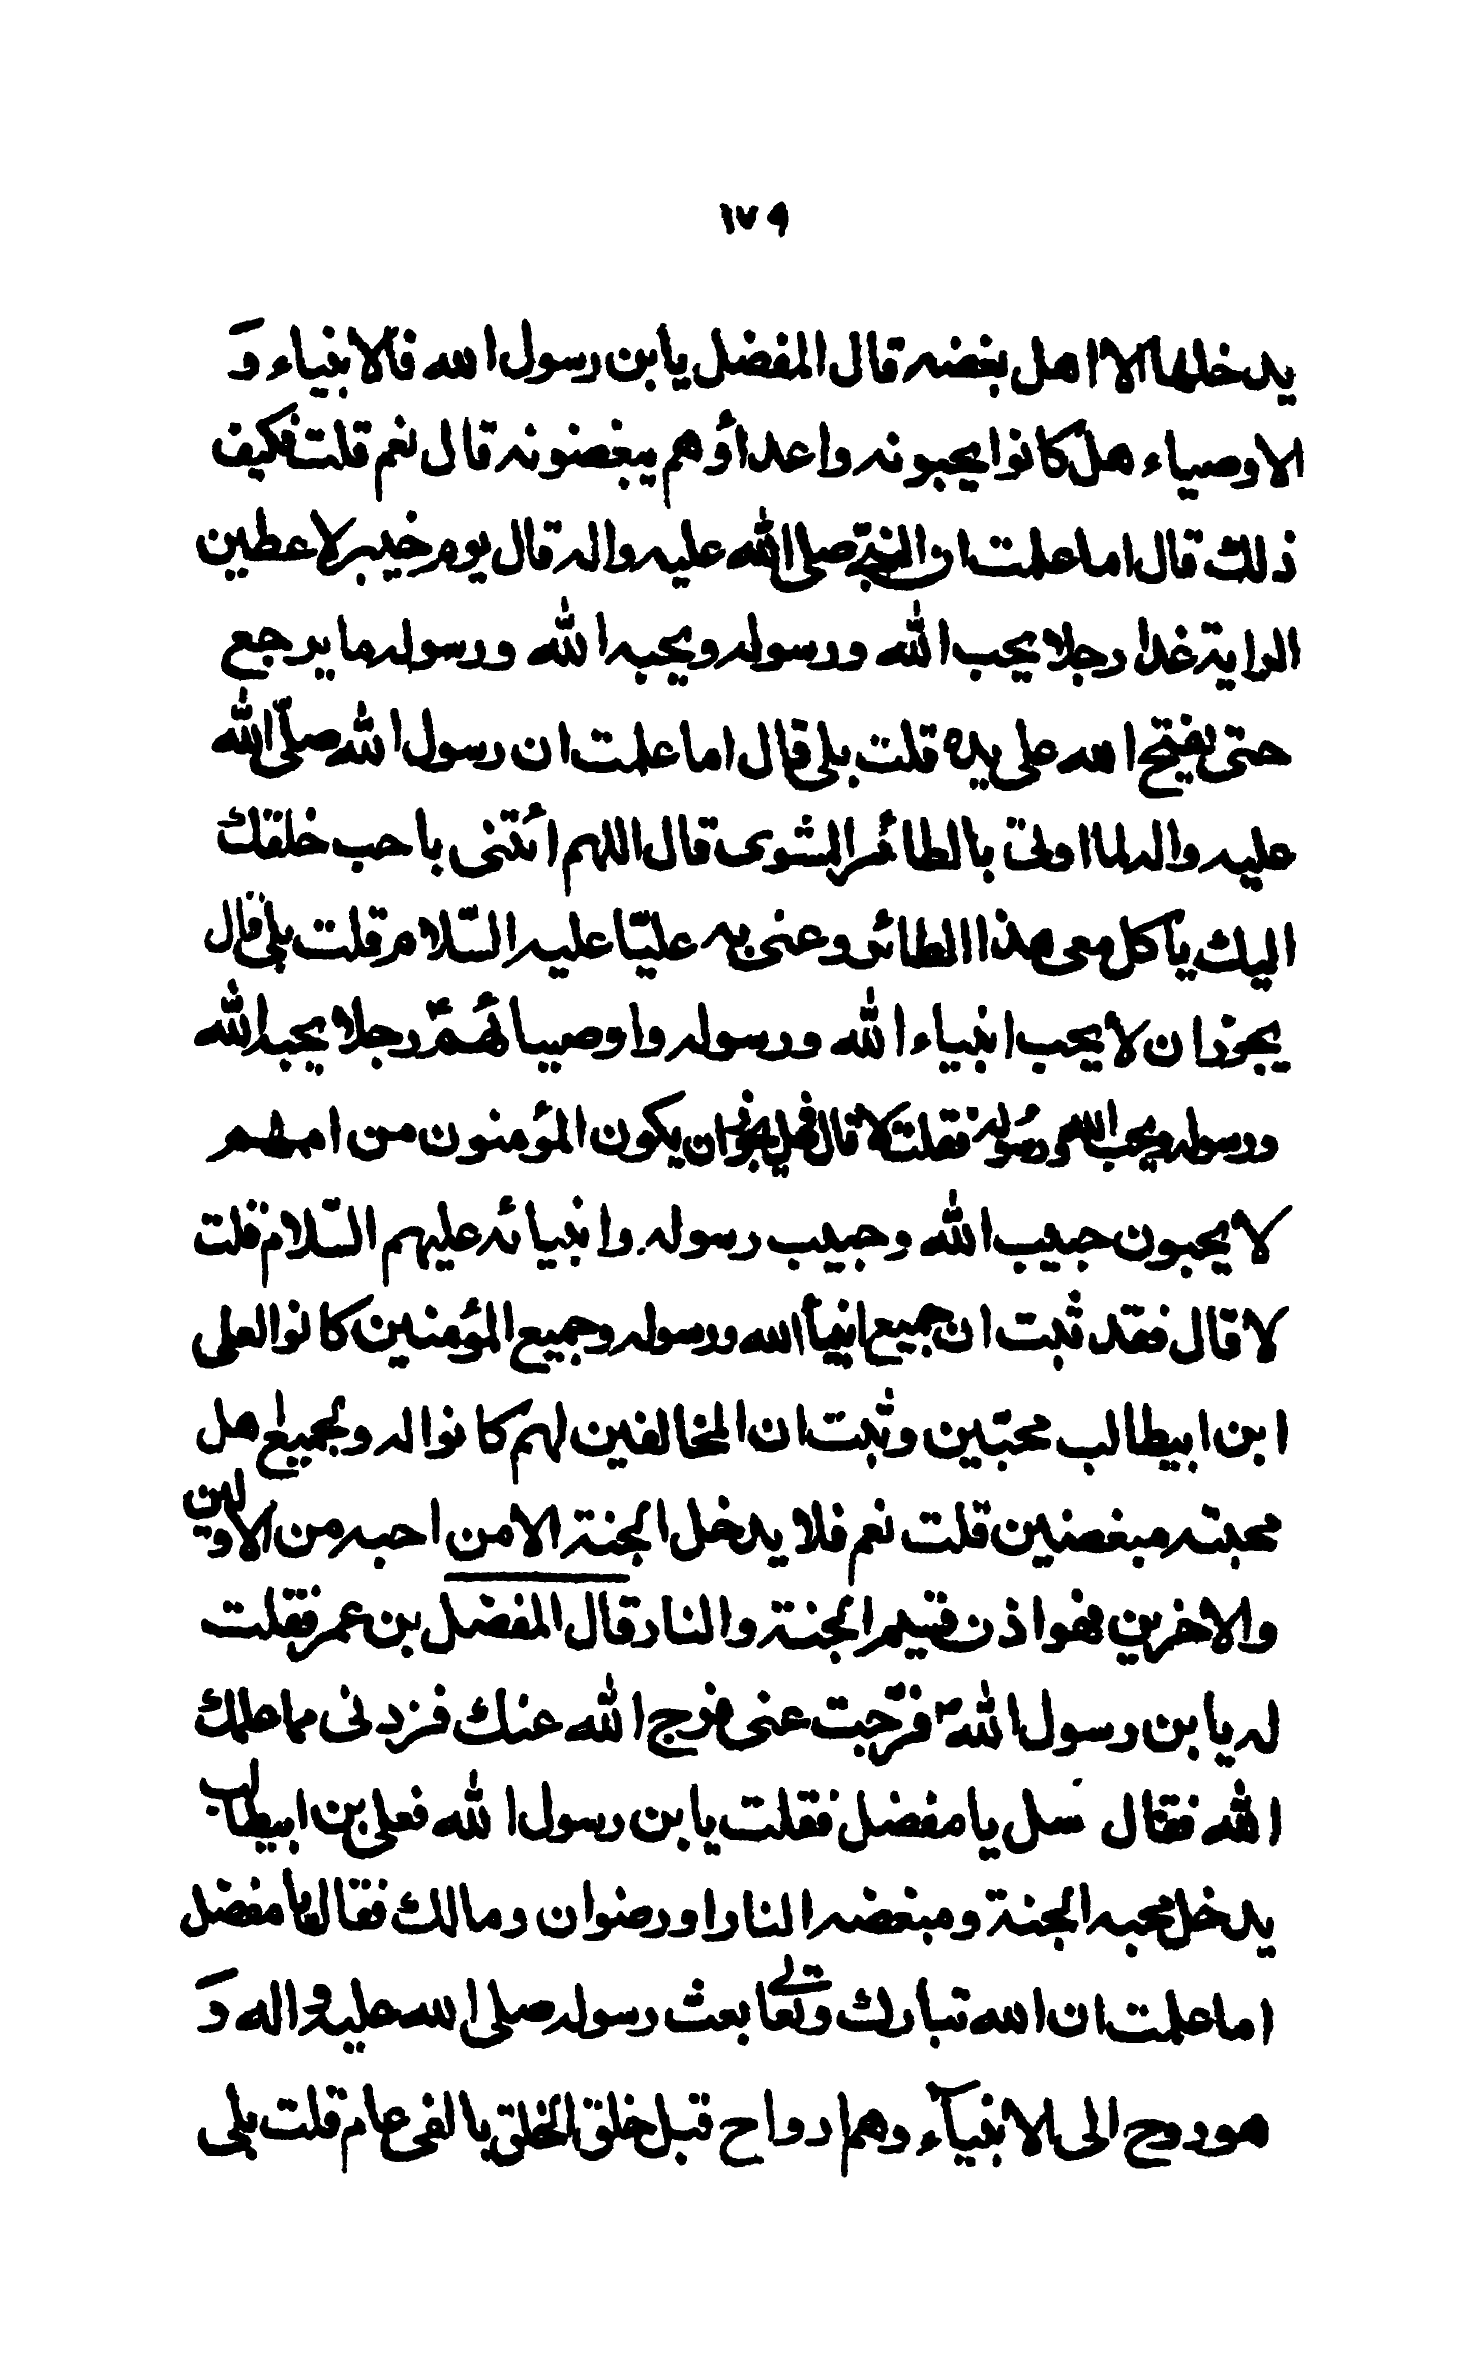 ١٧٩
يدخلها الا اهل بغضه قال المفضل يابن رسول الله فالانبياء و
الاوصياء هل كانوا يحبونه واعداؤهم يبغضونه قال نعم قلت فكيف
ذلك قال اما علمت ان النبي صلى الله عليه واله قال يوم خيبر لاعطين
الراية غدا رجلا يحب الله ورسوله ويحبه الله ورسوله ما يرجع
حتى يفتح الله على يده قلت بلى قال اما علمت ان رسول الله صلّى الله
عليه واله لما اوتى بالطائر المشوى قال اللهم ائتنى باحب خلقك
اليك ياكل معى هذا الطائر وعنى به عليّا عليه السّلام قلت بلى قال
يجوز ان لا يحب انبياء الله ورسوله واوصيائهمْ رجلا يحبه الله
ورسوله ويحب الله ورسوله فقلت لا قال فهل يجوز ان يكون المؤمنون من اممهم
لا يحبون حبيب الله وحبيب رسوله وانبيائه عليهم السّلام قلت
لا قال فقد ثبت ان جميع انبيآء الله ورسوله وجميع المؤمنين كانوا لعلى
ابن ابيطالب محبّين وثبت ان المخالفين لهم كانوا له ولجميع اهل
محبته مبغضين قلت نعم فلا يدخل الجنة الا من احبه من الاولين
والاخرين فهو اذن قسيم الجنة والنار قال المفضل بن عمر فقلت
له يا بن رسول الله ص فرّجت عنى فرج الله عنك فزدنى مما علمك
الله فقال سل يا مفضل فقلت يا بن رسول الله فعلى بن ابيطالب
يدخل محبه الجنة ومبغضه النار او رضوان ومالك فقال يا مفضل
اما علمت ان الله تبارك وتعالى بعث رسوله صلى الله عليه واله و
هو روح الى الانبيآء وهم ارواح قبل خلق الخلق بالفى عام قلت بلى